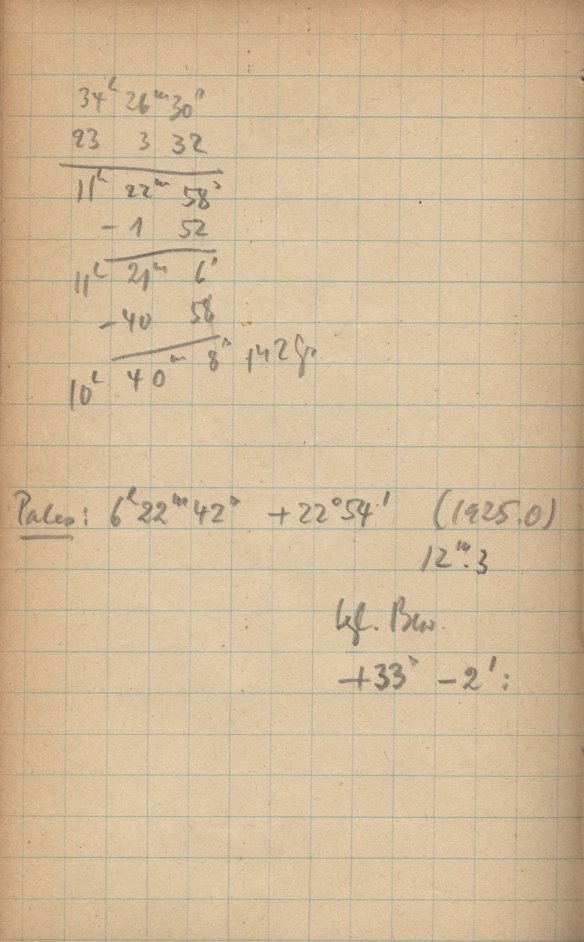 34ʰ 26ᵐ 30ˢ
23 3 32
11ʰ 22ᵐ 58ˢ
- 1 52
11ʰ 21ᵐ 6ˢ
- 40 58
10ʰ 40ᵐ 8ˢ 142
Pales: 6ʰ 22ᵐ 42ˢ +22° 54' (1925.0)
12ᵐ.3
tgl. Bew.
+33ˢ -2':